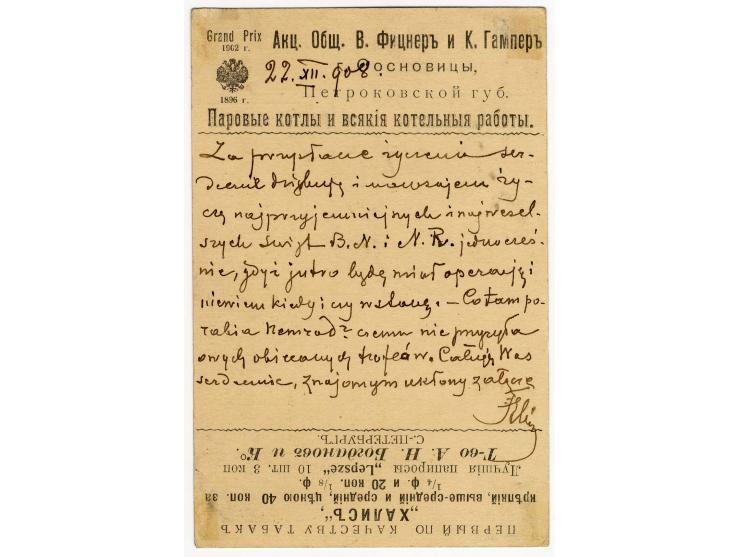 Grand Prix
1902 г.
Акц. Общ. В. Фицнеръ и К. Гамперъ
22.XII.908.
Сосновицы,
Петроковской губ.
1896 г.
Паровые котлы и всякія котельныя работы.
Za przysłane życzenia ser-
decznie dziękuję i nawzajem ży-
czę najprzyjemniejnych i najwesel-
szych Świąt B.N. i N.R. jednocześ-
nie, gdyż jutro będę miał operację i
niewiem kiedy i czy wstanę. – Co tam po-
rabia Nemrod? czemu nie przysyła
owych obiecanych trofeów. Całuję Was
serdecznie, znajomym ukłony załącz
ПЕРВЫЙ ПО КАЧЕСТВУ ТАБАКЪ
„ХАЛИСЪ“,
крѣпкій, выше-средній и средній, цѣною 40 коп. за
1/4 ф. и 20 коп. 1/8 ф.
Лучшія папиросы „Lepsze“ 10 шт. 3 коп
Т-во А. Н. Богдановъ и Ко.
С.-ПЕТЕРБУРГЪ.